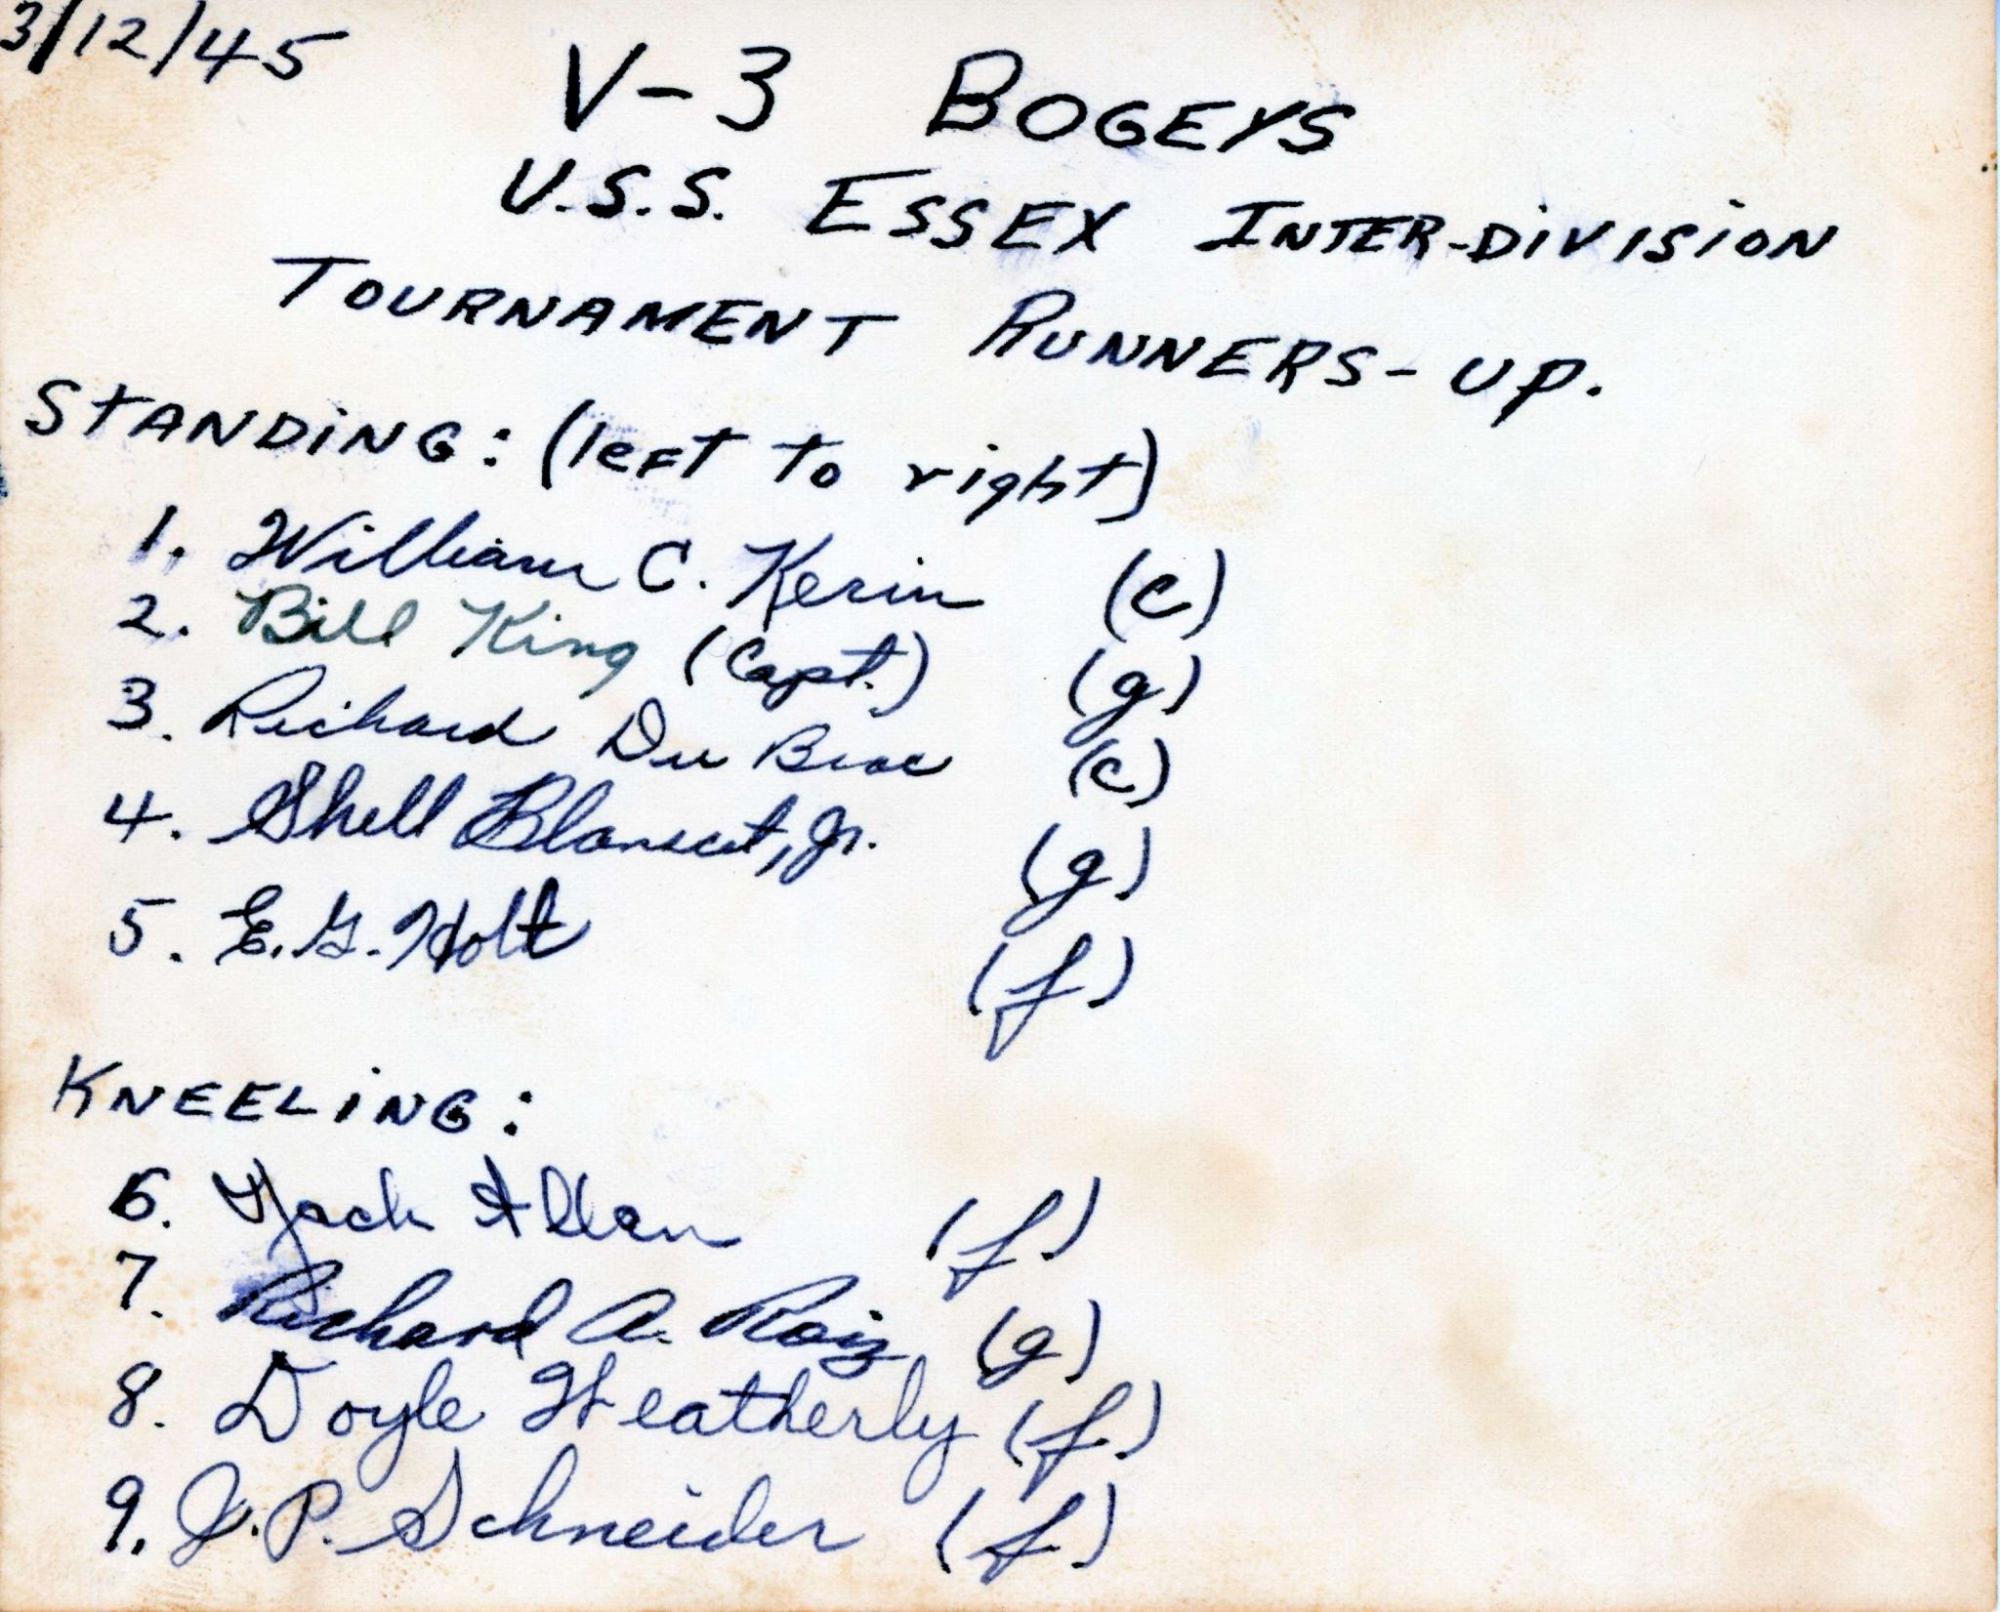 3/12/45
V-3 BOGEYS
U.S.S. ESSEX INTER-DIVISION
TOURNAMENT RUNNERS-UP.
STANDING: (left to right)
1. William C. Kerin (c)
2. Bill King (Capt.) (g)
3. Richard Du Brae (c)
4. Shell Blanscet, Jr. (g)
5. E. G. Holt (f)
KNEELING:
6. Jack Allan (f.)
7. Richard A. Roiz (g)
8. Doyle Heatherly (f.)
9. J. P. Schneider (f.)